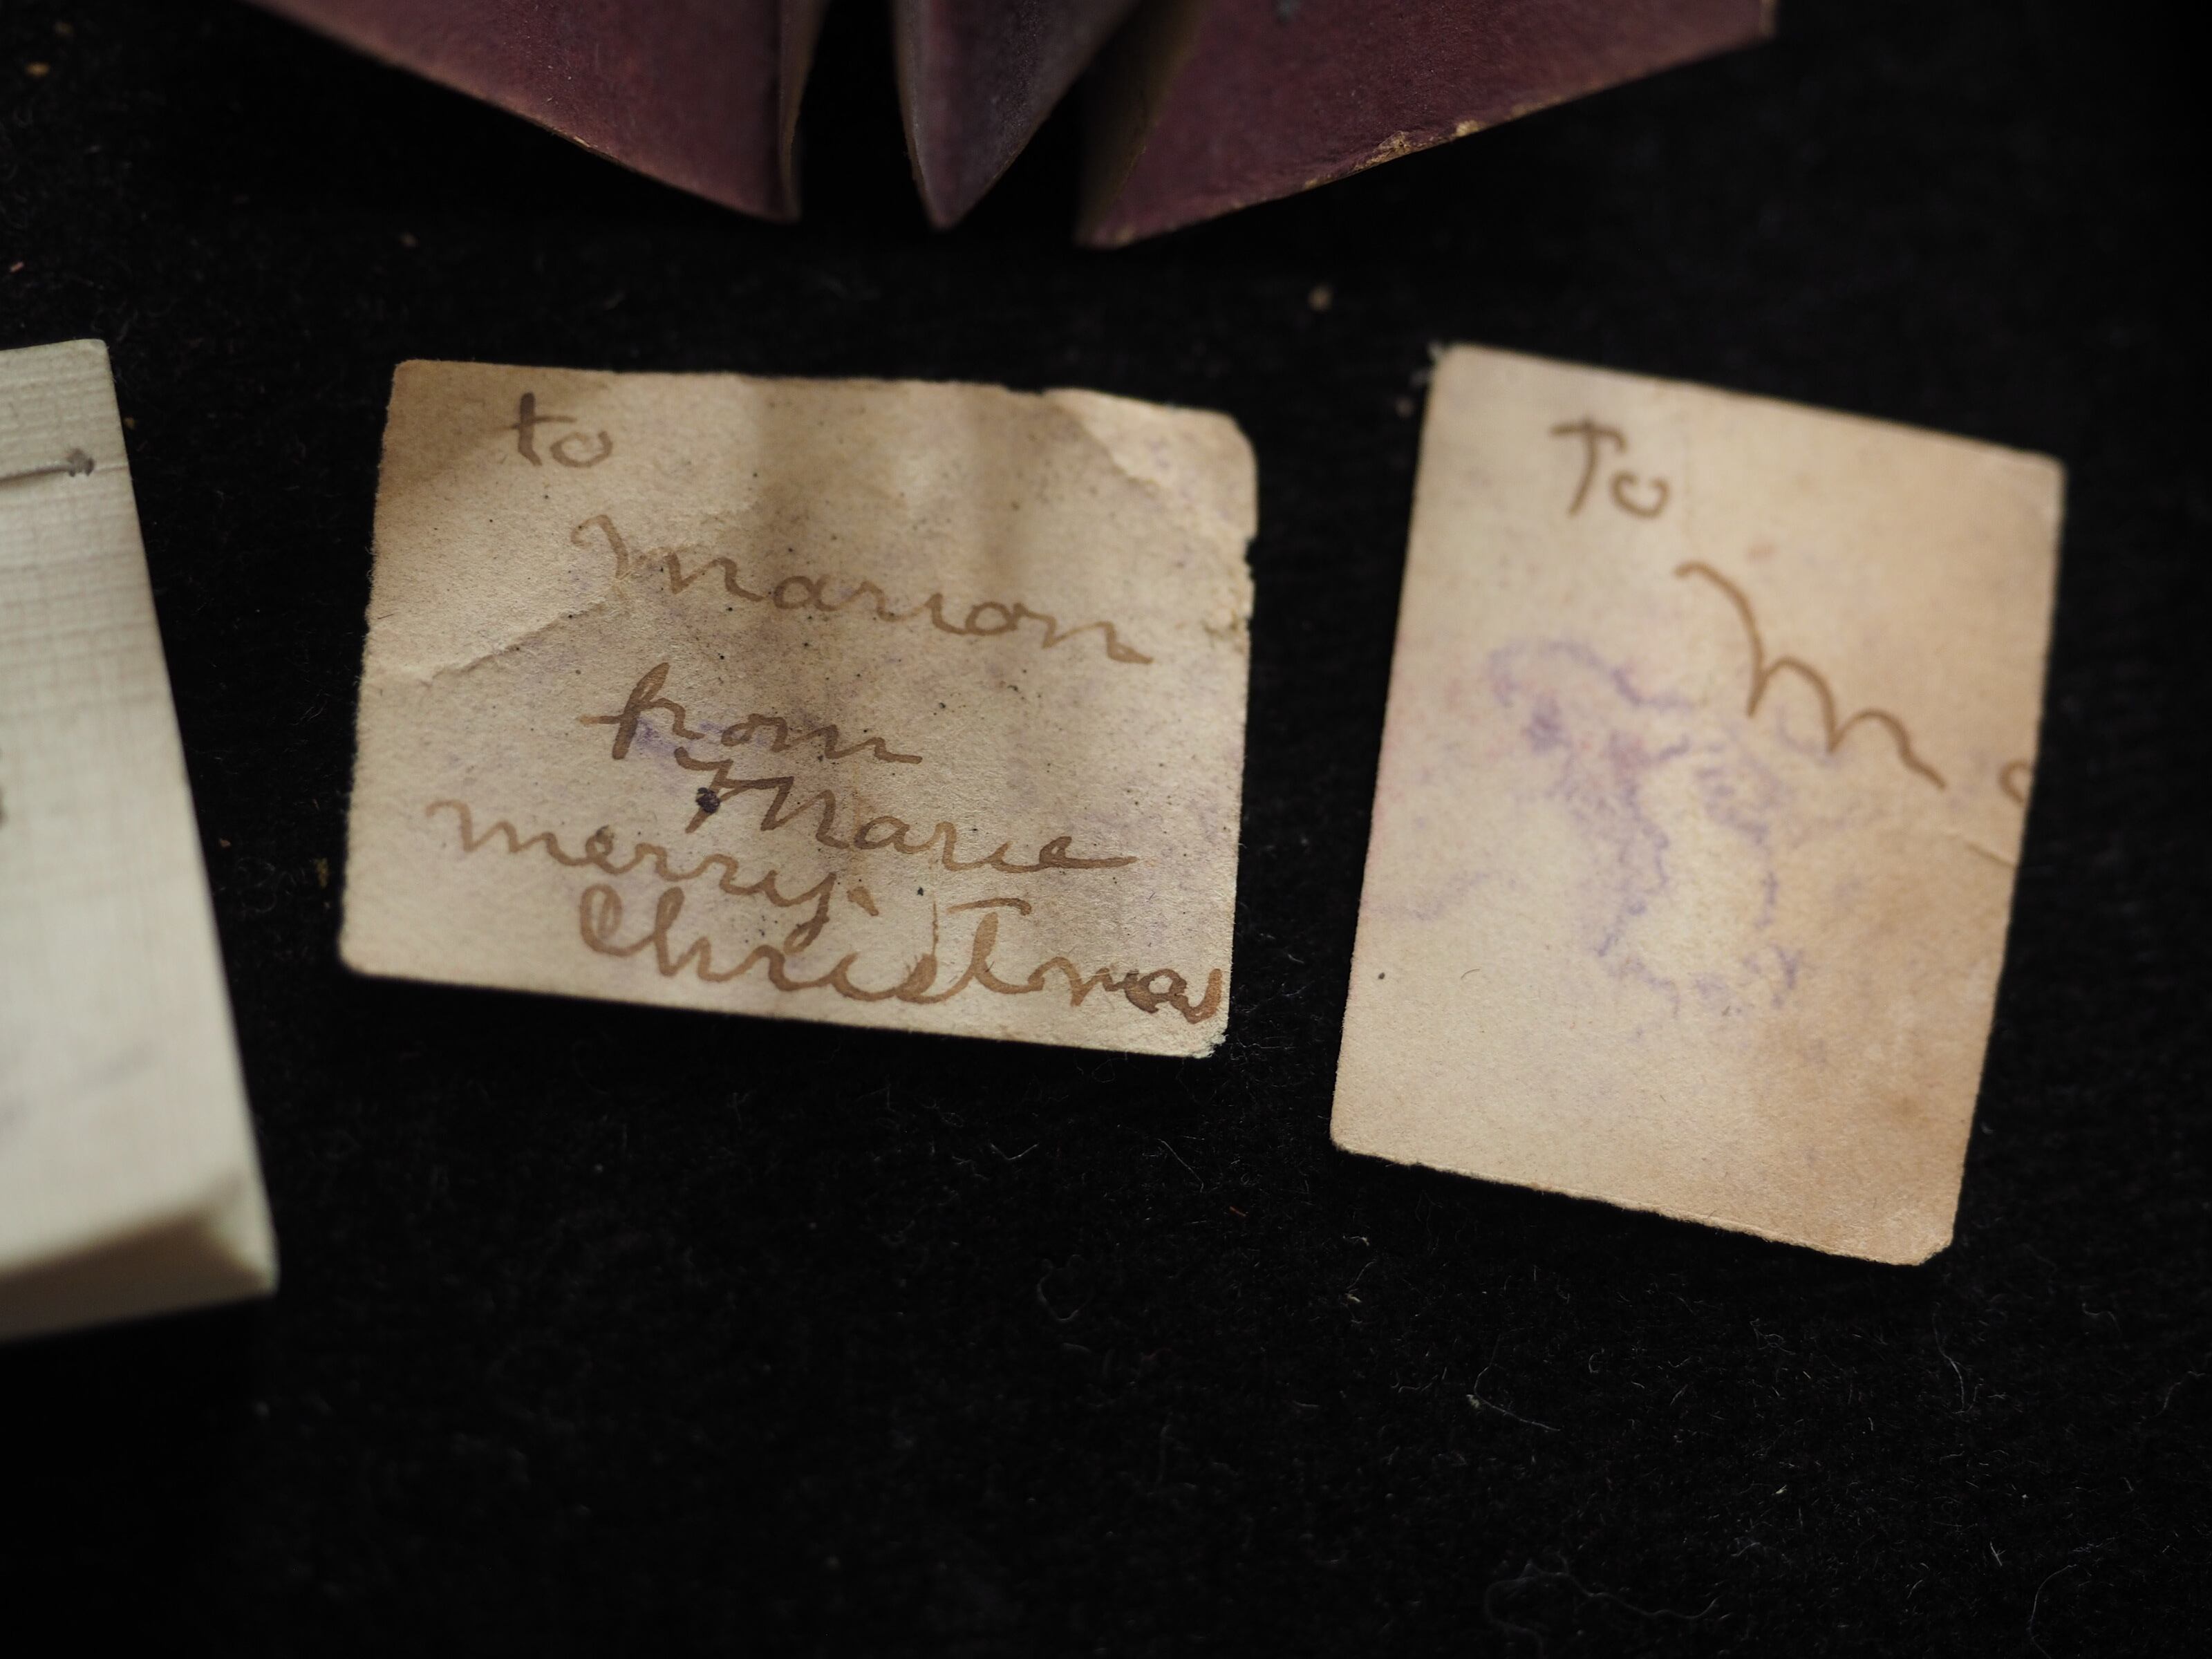 to
Marion
from
Marie
merry
Christmas
To
Ma